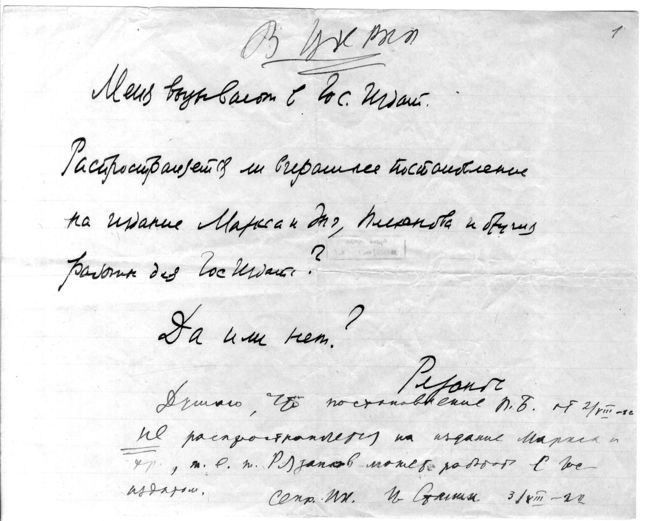 В Цк РКП
1
Меня вызывают в Гос. Издат.
Распространяется ли вчерашнее постановление
на издание Маркса и Энг, Плеханова и других
работ для Гос Издат?
Да или нет?
Рязанов
Думаю, что постановление П.Б. от 2/VIII-22
не распространяется на издание Маркса и
др., т. е. т. Рязанов может работать с Гос
издатом.
Секр. Цк. И Сталин 3/VIII-22